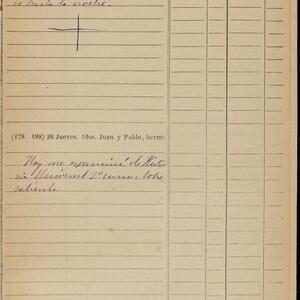 es hasta la noche.
(178- 188) 26 Jueves. Stos. Juan y Pablo, herms.
Hoy me examiné de Histo
ria Universal 2º curso: sobre
saliente